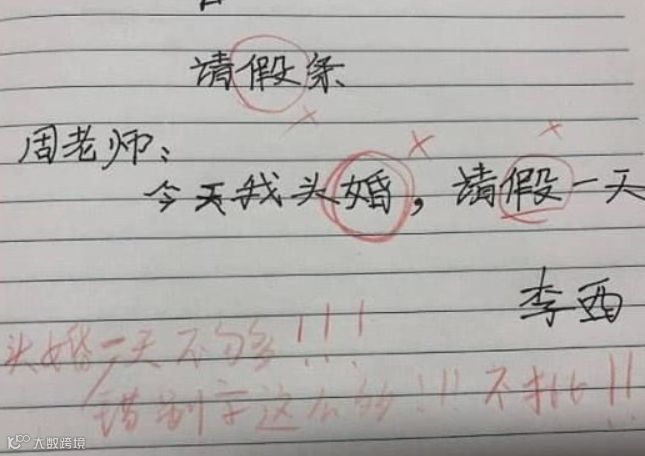 请假条
周老师：
今天我头婚，请假一天
李西
头婚一天不够!!!
错别字这么多!!!不批!!
大数跨境